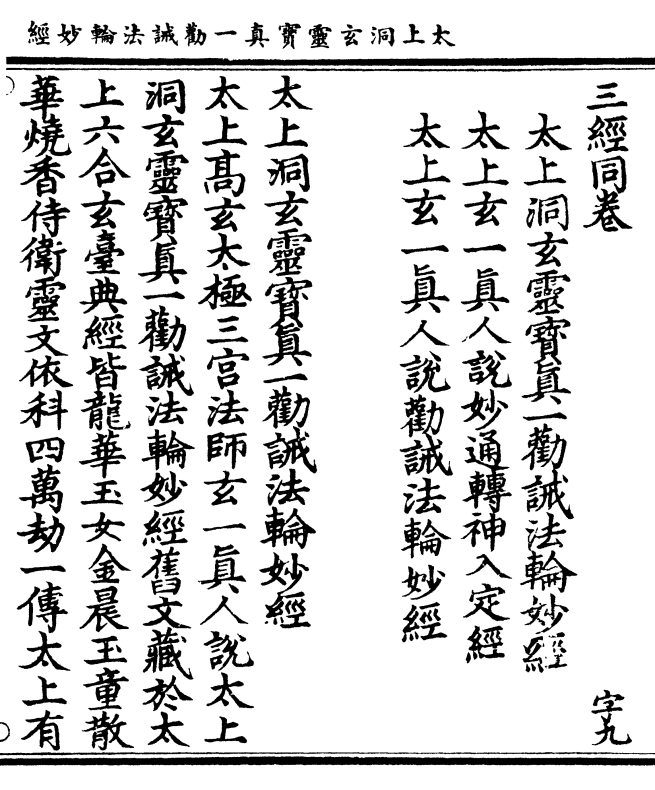 太上洞玄靈寳真一勸誡法輪妙經
三經同卷 字九
太上洞玄靈寳眞一勸誡法輪妙經
太上玄一眞人說妙通轉神入定經
太上玄一眞人說勸誡法輪妙經
太上洞玄靈寳眞一勸誡法輪妙經
太上髙玄大極三宫法師玄一眞人說太上
洞玄靈寳眞一勸誡法輪妙經舊文藏於太
上六合玄臺典經皆龍華玉女金晨玉童散
華燒香侍衛靈文依科四萬劫一傳太上有